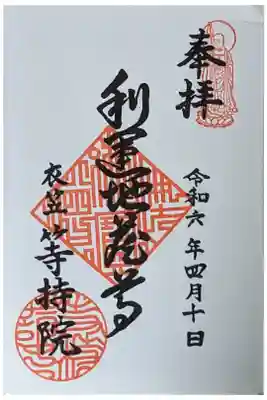 奉拝
令和六年四月十日
利運地蔵尊
衣笠等持院